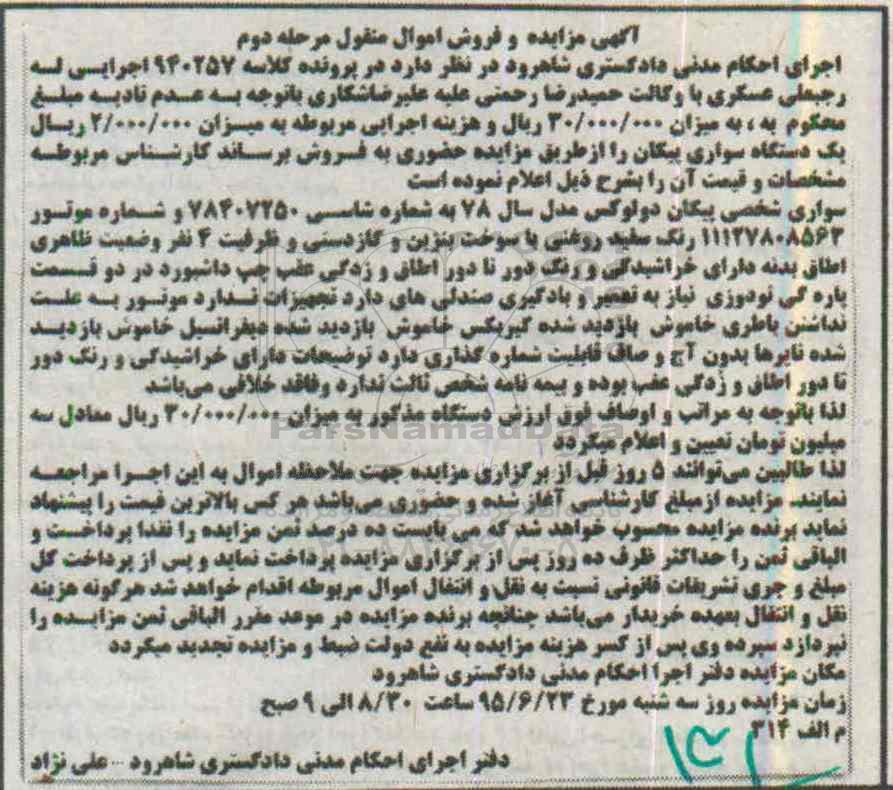 آگهی مزایده و فروش اموال منقول مرحله دوم
اجرای احکام مدنی دادگستری شاهرود در نظر دارد در پرونده کلاسه ۹۴۰۲۵۷ اجرایی له
رجبعلی عسکری با وکالت حمیدرضا رحمتی علیه علیرضاشکاری باتوجه به عدم تادیه مبلغ
محکوم به ، به میزان ۳۰/۰۰۰/۰۰۰ ریال و هزینه اجرایی مربوطه به میزان ۲/۰۰۰/۰۰۰ ریال
یک دستگاه سواری پیکان را ازطریق مزایده حضوری به فروش برساند کارشناس مربوطه
مشخصات و قیمت آن را بشرح ذیل اعلام نموده است
سواری شخصی پیکان دولوکس مدل سال ۷۸ به شماره شاسی ۷۸۴۰۷۲۵۰ و شماره موتور
۱۱۱۲۷۸۰۸۵۶۳ رنگ سفید روغنی با سوخت بنزین و گازدستی و ظرفیت ۴ نفر وضعیت ظاهری
اطاق بدنه دارای خراشیدگی و رنگ دور تا دور اطاق و زدگی عقب چپ داشبورد در دو قسمت
پاره گی تودوزی نیاز به تعمیر و بادگیری صندلی های دارد تجهیزات ندارد موتور به علت
نداشتن باطری خاموش بازدید شده گیربکس خاموش بازدید شده دیفرانسیل خاموش بازدید
شده تایرها بدون آج و صاف قابلیت شماره گذاری دارد توضیحات دارای خراشیدگی و رنگ دور
تا دور اطاق و زدگی عقب بوده و بیمه نامه شخص ثالث ندارد وفاقد خلافی می‌باشد
لذا باتوجه به مراتب و اوصاف فوق ارزش دستگاه مذکور به میزان ۳۰/۰۰۰/۰۰۰ ریال معادل سه
میلیون تومان تعیین و اعلام میگردد
لذا طالبین می‌توانند ۵ روز قبل از برگزاری مزایده جهت ملاحظه اموال به این اجرا مراجعه
نمایند. مزایده ازمبلغ کارشناسی آغاز شده و حضوری می‌باشد هر کس بالاترین قیمت را پیشنهاد
نماید برنده مزایده محسوب خواهد شد که می بایست ده درصد ثمن مزایده را نقدا پرداخت و
الباقی ثمن را حداکثر ظرف ده روز پس از برگزاری مزایده پرداخت نماید و پس از پرداخت کل
مبلغ و جری تشریفات قانونی نسبت به نقل و انتقال اموال مربوطه اقدام خواهد شد هرگونه هزینه
نقل و انتقال بعهده خریدار می‌باشد چنانچه برنده مزایده در موعد مقرر الباقی ثمن مزایده را
نپردازد سپرده وی پس از کسر هزینه مزایده به نفع دولت ضبط و مزایده تجدید میگردد
مکان مزایده دفتر اجرا احکام مدنی دادگستری شاهرود
زمان مزایده روز سه شنبه مورخ ۹۵/۶/۲۳ ساعت ۸/۳۰ الی ۹ صبح
م الف ۳۱۴
دفتر اجرای احکام مدنی دادگستری شاهرود ... علی نژاد
ParsNamadData